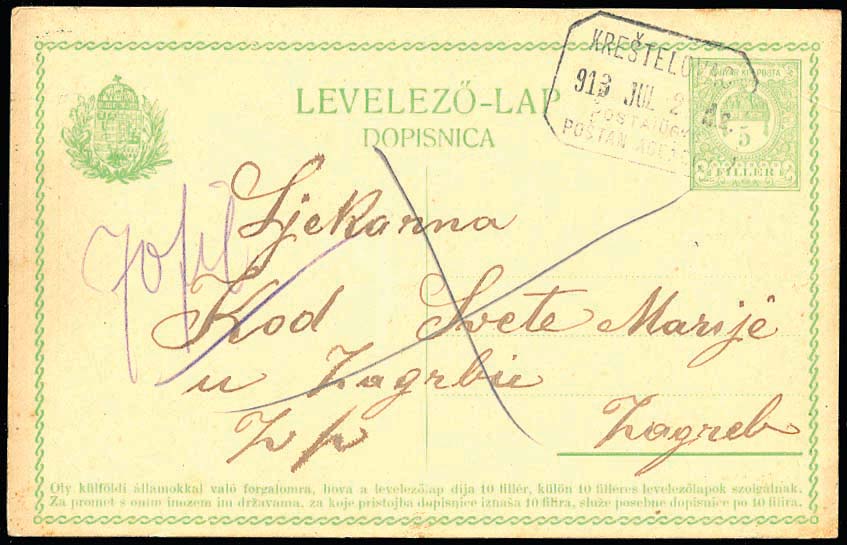 KREŠTELOVAC
913 JUL 2
POSTAÜGY
POŠTAN
MAGYAR KIR. POSTA
5
FILLÉR
LEVELEZŐ-LAP
DOPISNICA
Ljekarna
Kod Svete Marijé
u Zagrbiu
Zagreb
Oly külföldi államokkal való forgalomra, hova a levelezőlap díja 10 fillér, külön 10 filléres levelezőlapok szolgálnak.
Za promet s onim inozem im državama, za koje pristojba dopisnice iznaša 10 filira, služe posebne dopisnice po 10 filira.